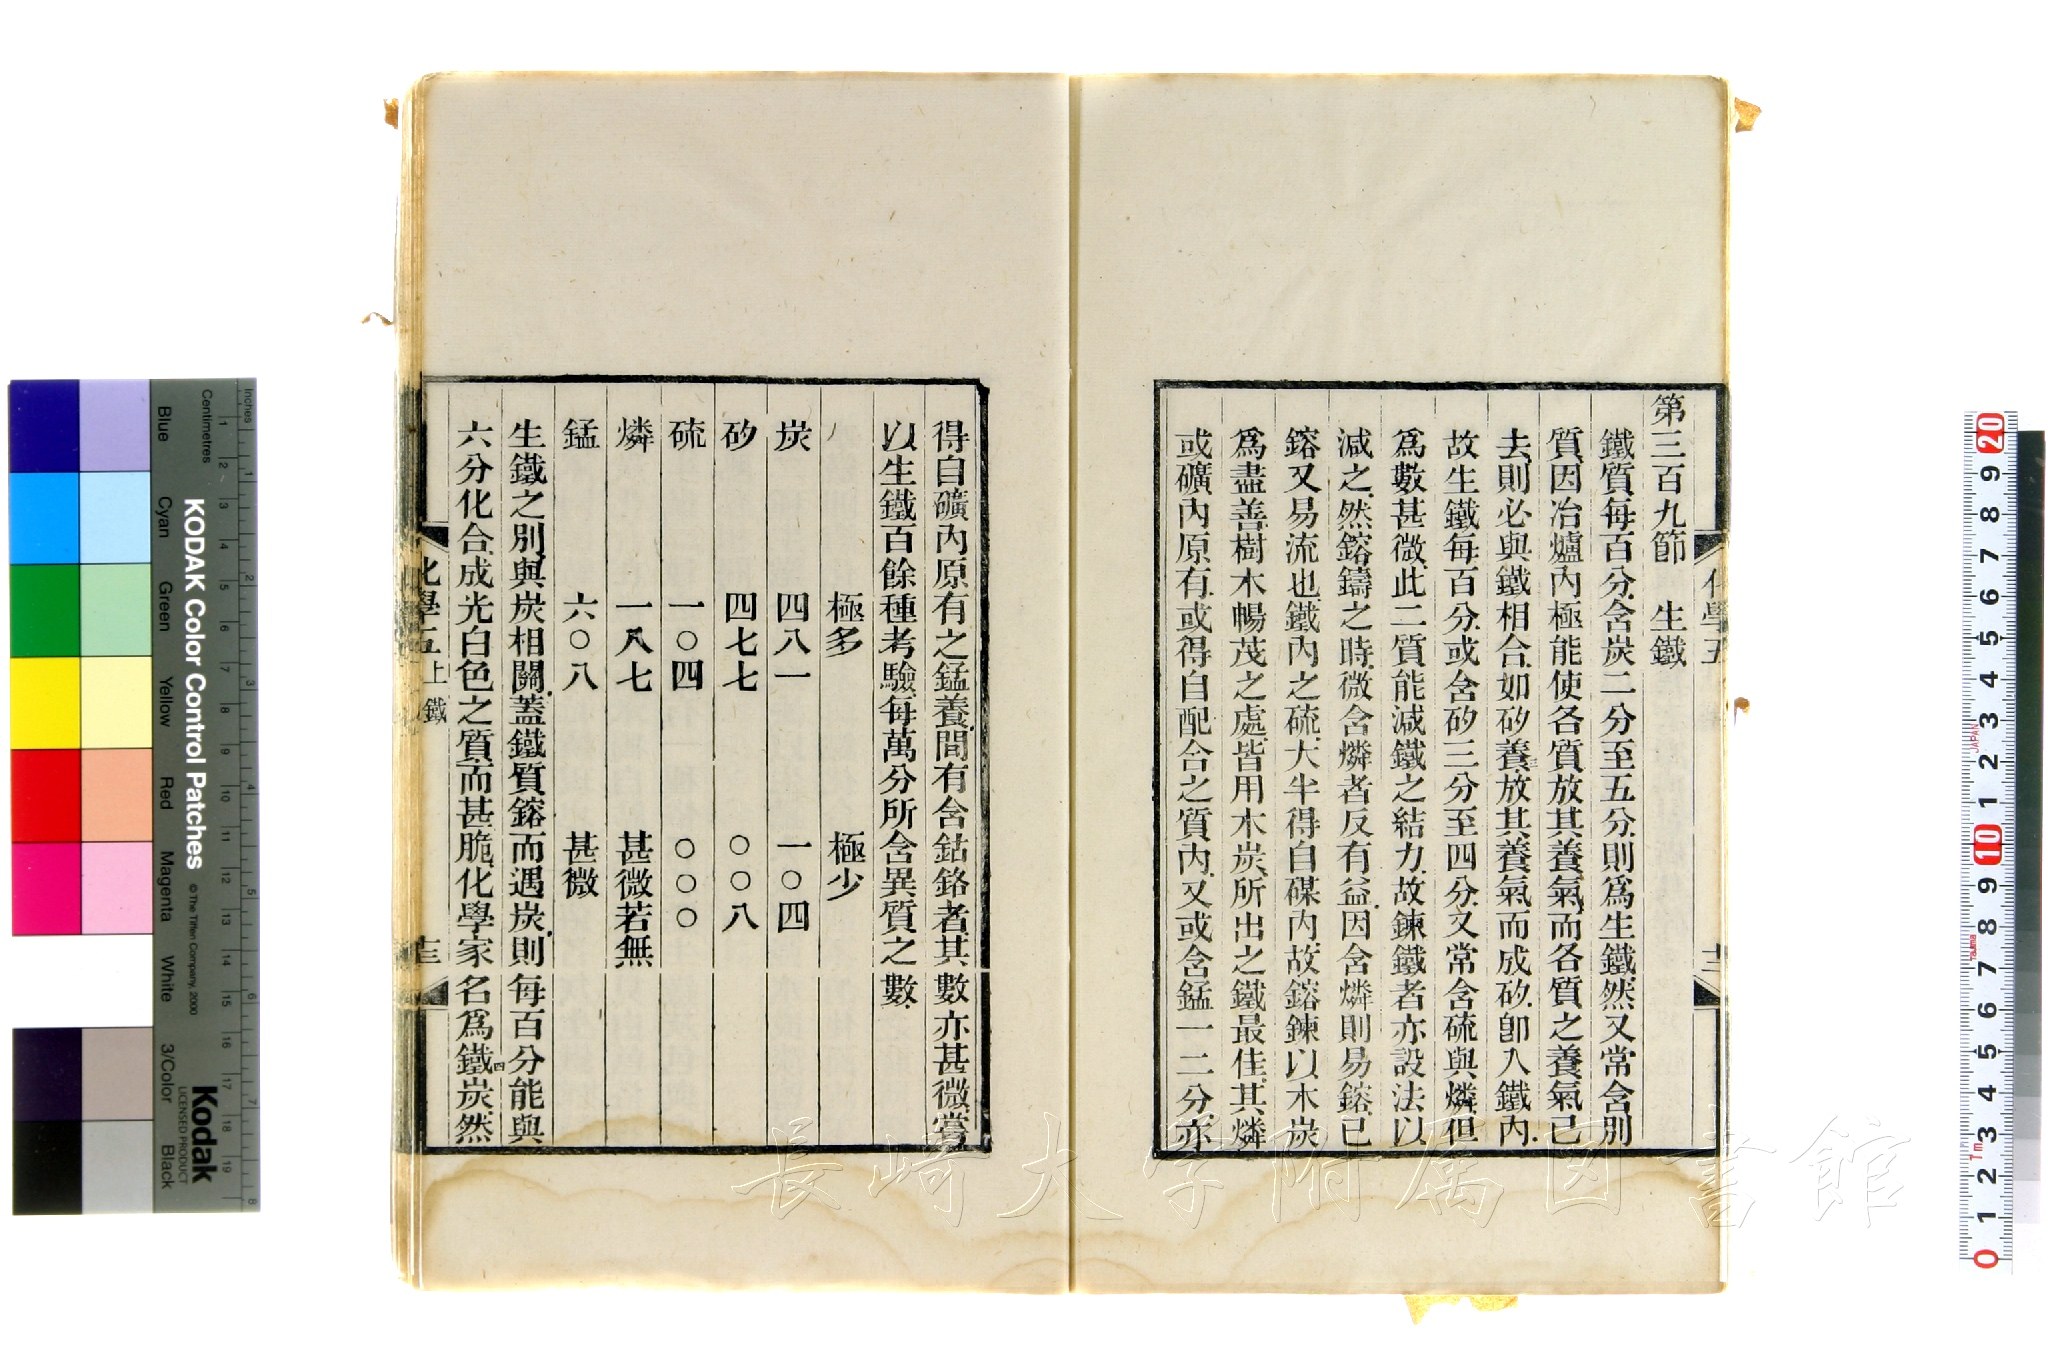 第三百九節　生鐵
鐵質每百分含炭二分至五分則爲生鐵然又常含別
質因冶爐內極能使各質放其養氣而各質之養氣已
去則必與鐵相合如矽養三放其養氣而成矽卽入鐵內
故生鐵每百分或含矽三分至四分又常含硫與燐但
爲數甚微此二質能減鐵之結力故鍊鐵者亦設法以
減之然鎔鑄之時微含燐者反有益因含燐則易鎔已
鎔又易流也鐵內之硫大半得自煤內故鎔鍊以木炭
爲盡善樹木暢茂之處皆用木炭所出之鐵最佳其燐
或礦內原有或得自配合之質內又或含錳一二分亦
化學五
十二
得自礦內原有之錳養間有含鈷鉻者其數亦甚微嘗
以生鐵百餘種考驗每萬分所含異質之數
極多　極少
炭　四八一　一〇四
矽　四七七　〇〇八
硫　一〇四　〇〇〇
燐　一八七　甚微若無
錳　六〇八　甚微
生鐵之別與炭相關蓋鐵質鎔而遇炭則每百分能與
六分化合成光白色之質而甚脆化學家名爲鐵四炭然
化學五上　鐵
十三
長崎大学附属図書館
KODAK Color Control Patches
© The Tiffen Company, 2000
Kodak
LICENSED PRODUCT
Inches
Centimetres
Blue
Cyan
Green
Yellow
Red
Magenta
White
3/Color
Black
1 2 3 4 5 6 7 8 9 10 11 12 13 14 15 16 17 18 19
1 2 3 4 5 6 7 8
20 9 8 7 6 5 4 3 2 1 10 9 8 7 6 5 4 3 2 1 0
JAPAN
1m